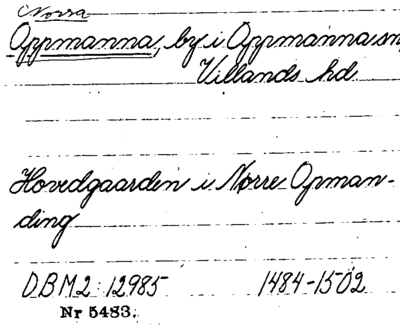 Norra
Oppmanna, by i Oppmanna sn
Villands hd.
Hovedgaarden i Nørre Opman-
ding
DBM2: 12985 1484-1502
Nr 5483.